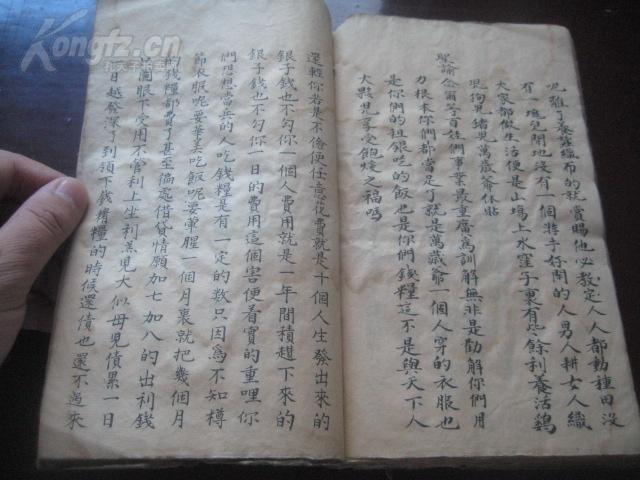 Kongfz.cn
兒雜了養蠶織布的就賞賜他必教定人人都勤種田沒
有一塊兒閒地沒有一個游手好閒的人男人耕女人織
大家都做生活便是山塲上水窪子裏有些餘利養活鷄
兒狗兒猪兒萬歲爺体貼
聖諭合爾等百姓們事業最重廣為訓解無非是勸解你們用
力根本你們都當定了就是萬歲爺一個人穿的衣服也
是你們的租銀吃的飯也是你們錢糧這不是與天下人
大夥兒享受飽煖之福嗎
還輕你若是不儉便任意花費就是十個人生發出來的
銀子錢也不勾你一個人費用就是一年間積趲下來的
銀子錢也不勾你一日的費用這個害便着實的重哩你
們想想當兵的人吃錢糧是有一定的数只因為不知樽
節衣服呢要華美吃飯呢要葷腥一個月裏就把幾個月
的錢糧都費了甚至徧處借貸情願加七加八的出利錢
圖眼下受用不管利上坐利羔兒大似母兒債累一日
一日越發深了到領下錢糧的時候還債也還不過來